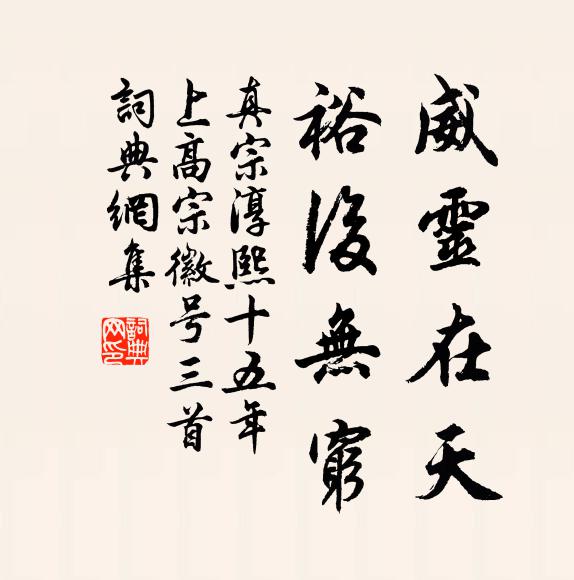 威靈在天
裕後無窮
真宗淳熙十五年
上高宗徽号三首
詞典網集
詞典网印